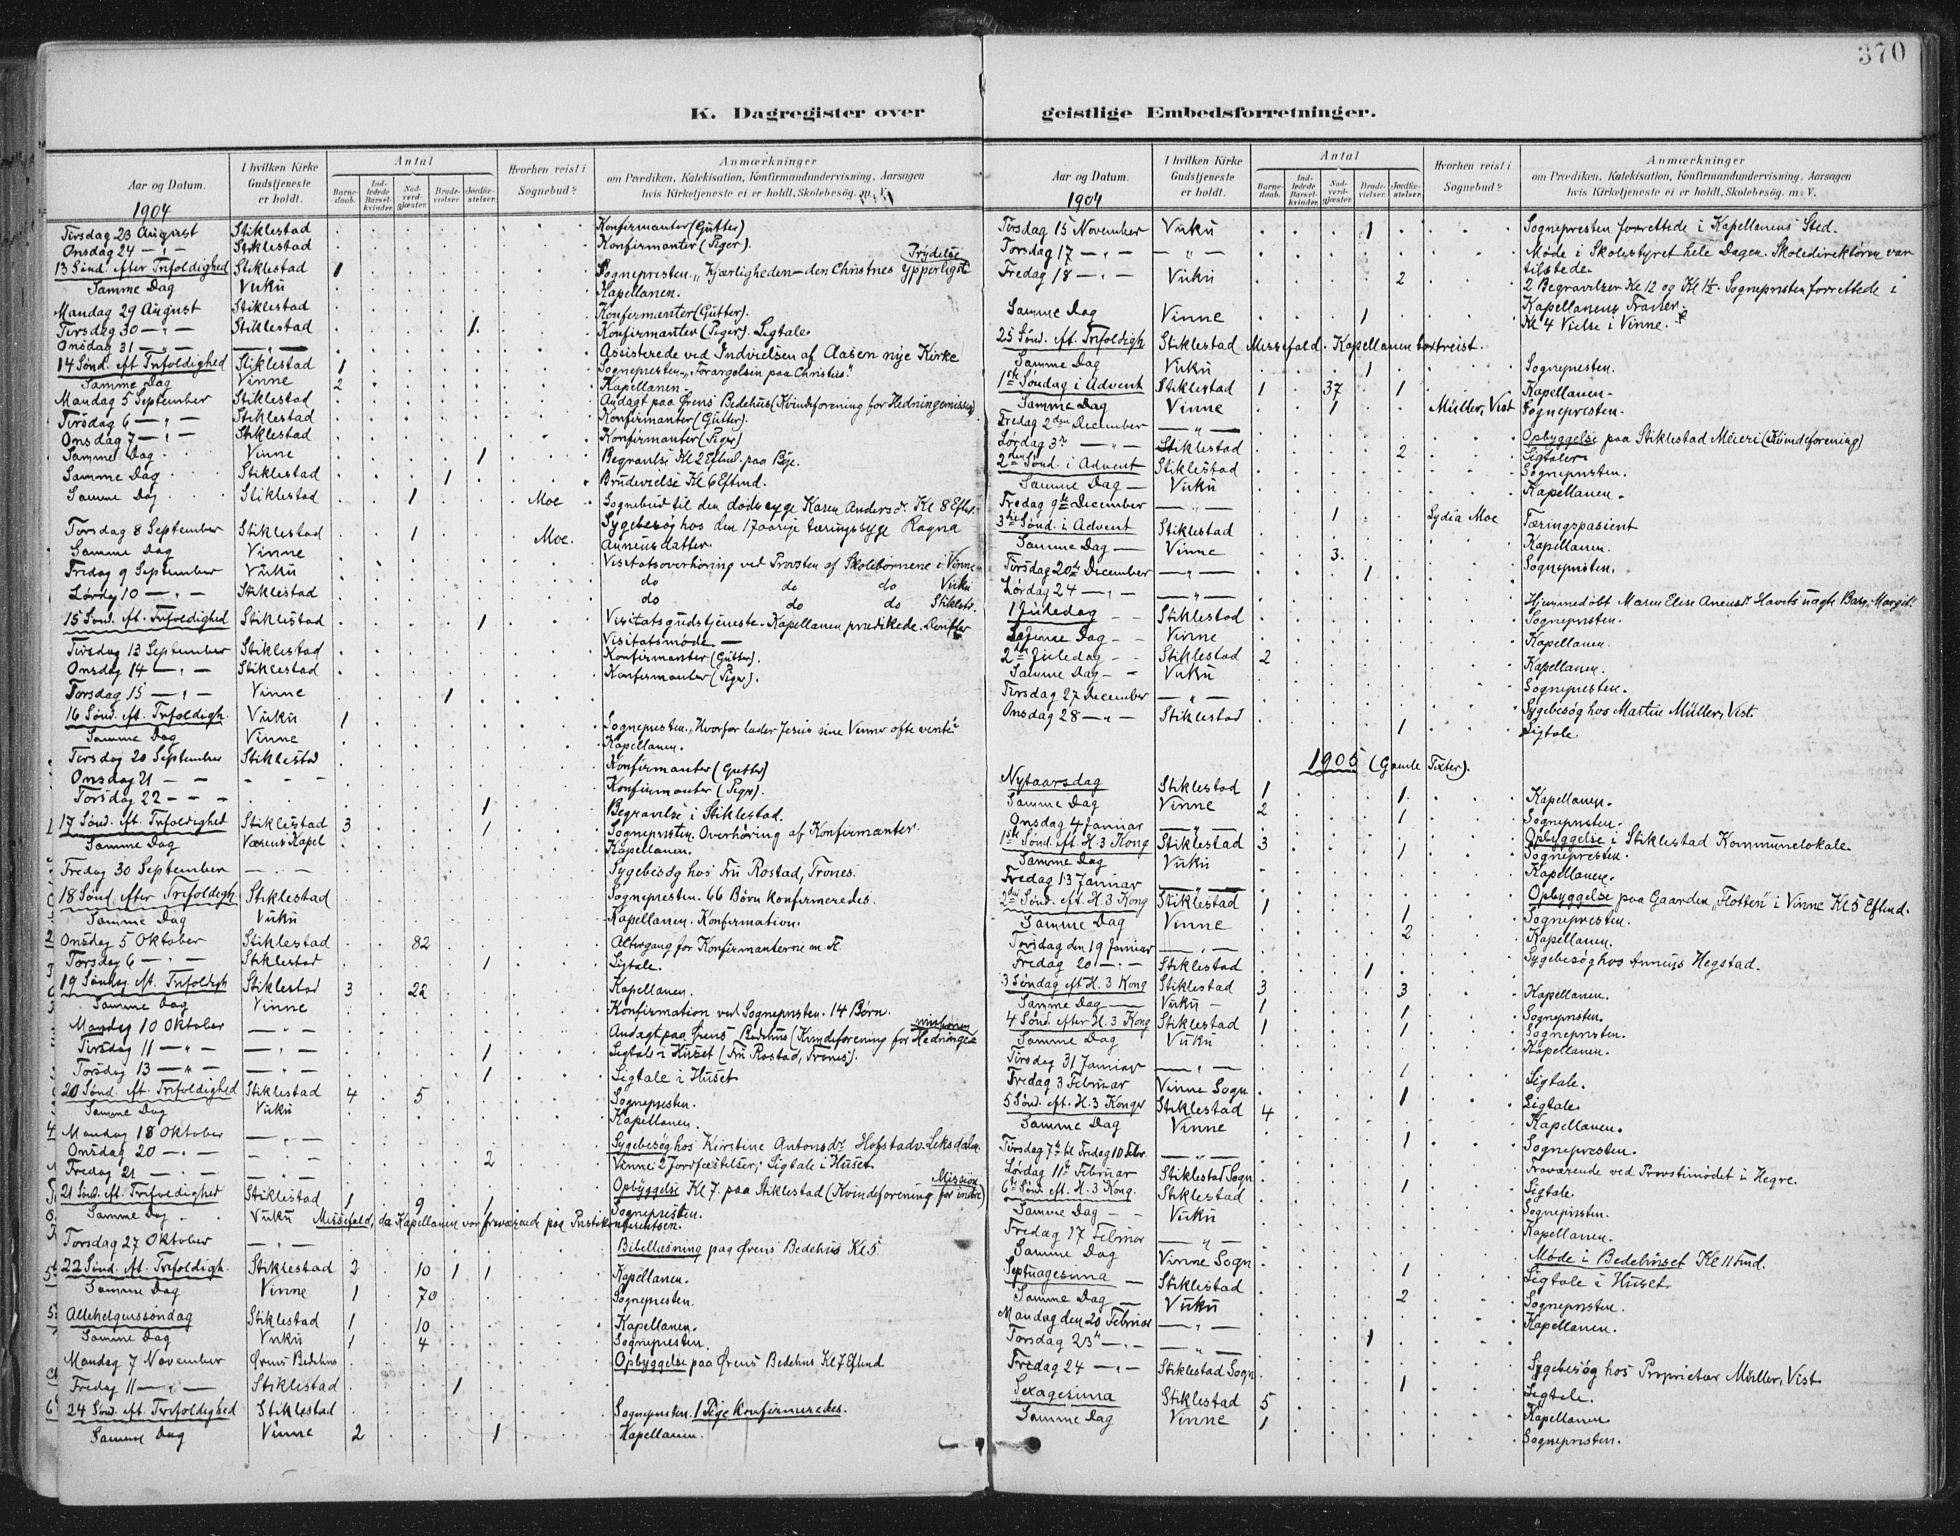 370
K. Dagregister over geistlige Embedsforretninger.
Aar og Datum. I hvilken Kirke Gudstjeneste er holdt. Antal Barnedaab. Indledede Barselkvinder. Nadverdgjæster. Brudevielser. Jordfæstelser. Hvorhen reist i Sognebud? Anmærkninger om Prædiken, Katekisation, Konfirmandundervisning, Aarsagen hvis Kirketjeneste ei er holdt, Skolebesøg. m. V.
1904
Tirsdag 23 August Stiklestad Konfirmanter (Gutter)
Onsdag 24 — " — Stiklestad Konfirmanter (Piger).
13 Sønd. efter Trifoldighed Stiklestad 1 Sognepresten. "Kjærligheden – den Christnes ypperligste Prydelse
Samme Dag Vuku Kapellanen.
Mandag 29 August Stiklestad Konfirmanter (Gutter).
Tirsdag 30 — " — Stiklestad 1 Konfirmanter (Piger). Ligtale.
Onsdag 31 — " — — " — Assisterede ved Indvielsen af Aasen nye Kirke
14 Sønd. eft. Trifoldighed Stiklestad 1 Sognepresten. "Forargelsen paa Christus."
Samme Dag Vinne 2 Kapellanen.
Mandag 5 September Stiklestad Andagt paa Ørens Bedehus (Kvindeforening for Hedningemission)
Tirsdag 6 — " — Stiklestad Konfirmanter (Gutter).
Onsdag 7 — " — Stiklestad Konfirmanter (Piger)
Samme Dag Vinne 1 Begravelse Kl 2 Eftmd. paa Bye.
Samme Dag Stiklestad 1 Brudevielse Kl 6 Eftmd.
Samme Dag Stiklestad 1 Moe Sognebud til den dødssyge Karen Andersdr. Kl 8 Efter.
Torsdag 8 September Stiklestad 1 Moe. Sygebesøg hos den 17 aarige tæringssyge Ragna Anneusdatter.
Samme Dag Vinne Visitatsoverhøring ved Provsten af Skolebørnene i Vinne
Fredag 9 September Vuku do do do Vuku
Lørdag 10 — " — Stiklestad do do do Stiklest.
15 Sønd. eft. Trifoldighed Stiklestad 1 Visitatsgudstjeneste. Kapellanen prædikede. Derefter Visitatsmøde —
Tirsdag 13 September Stiklestad Konfirmanter (Gutter).
Onsdag 14 — " — Stiklestad Konfirmanter (Piger).
Torsdag 15 — " — Vinne 1
16 Sønd. eft. Trifoldigh. Vuku 1 Sognepresten. "Hvorfor lader Jesus sine Venner ofte vente"
Samme Dag Vinne Kapellanen.
Tirsdag 20 September Stiklestad Konfirmanter (Gutter)
Onsdag 21 — — Konfirmanter (Piger).
Torsdag 22 — — 1 Begravelse i Stiklestad.
17 Sønd. eft. Trifoldighed Stiklestad 3 1 Sognepresten. Overhøring af Konfirmanter.
Samme Dag Værens Kapel Kapellanen.
Fredag 30 September — Sygebesøg hos Fru Rostad, Trones.
18 Sønd. efter Trifoldigh. Stiklestad Sognepresten. 66 Børn konfirmeredes.
Samme Dag Vuku Kapellanen. Konfirmation.
Onsdag 5 Oktober Stiklestad 82 Altergang for Konfirmanterne m. fl.
Torsdag 6 — " — Stiklestad 1 Ligtale.
19 Søndag eft. Trifoldigh Stiklestad 3 22 Kapellanen.
Samme Dag Vinne Konfirmation ved Sognepresten. 14 Børn.
Mandag 10 Oktober — " — Andagt paa Ørens Bedehus (Kvindeforening for Hedninge missionen
Tirsdag 11 — " — — " — 1 Ligtale i Huset (Fru Rostad, Trones).
Torsdag 13 — " — — " — 1 Ligtale i Huset
20 Sønd. eft. Trifoldighed Stiklestad 4 5 Sognepresten.
Samme Dag Vuku Kapellanen.
Mandag 18 Oktober — " — Sygebesøg hos Kirstine Antonsdr. Hofstadv. Leksdalen.
Onsdag 20 — " — 2 Vinne: 2 Jordfæstelser; Ligtale i Huset
Fredag 21 — " — Opbyggelse Kl 7. paa Stiklestad (Kvindeforening for indre Mission)
21 Sønd. eft. Trifoldighed Stiklestad 1 9 1 Sognepresten.
Samme Dag Vuku Messefald, da Kapellanen var fraværende paa Prestekonferentsen.
Torsdag 27 Oktober — " — Bibellæsning paa Ørens Bedehus Kl 5
22 Sønd. eft. Trifoldigh. Stiklestad 2 10 1 1 Kapellanen.
Samme Dag Vinne 1 70 Sognepresten.
Allehelgenssøndag Stiklestad 1 10 Kapellanen.
Samme Dag Vuku 1 4 Sognepresten.
Mandag 7 November Ørens Bedehus Opbyggelse paa Ørens Bedehus Kl 7 Eftmd
Fredag 11 — " — Stiklestad 1
24 Sønd. eft. Trifoldighed Stiklestad Sognepresten. 1 Pige konfirmeredes.
Samme Dag Vinne 2 1 Kapellanen.
Aar og Datum. I hvilken Kirke Gudstjeneste er holdt. Antal Barnedaab. Indledede Barselkvinder. Nadverdgjæster. Brudevielser. Jordfæstelser. Hvorhen reist i Sognebud? Anmærkninger om Prædiken, Katekisation, Konfirmandundervisning, Aarsagen hvis Kirketjeneste ei er holdt, Skolebesøg. m. V.
1904
Tirsdag 15 November Vuku 1 Sognepresten forrettede i Kapellanens Sted.
Torsdag 17 — " — — " — Møde i Skolestyret hele Dagen. Skoledirektøren var tilstede.
Fredag 18 — " — Vuku 2 2 Begravelser Kl 12 og Kl 1½. Sognepresten forrettede i Kapellanens Fravær.
Samme Dag Vinne 1 Kl 4 Vielse i Vinne.
25 Sønd. eft. Trifoldigh Stiklestad Messefald. Kapellanen bortreist.
Samme Dag Vuku 1 Sognepresten.
1ste Søndag i Advent Stiklestad 1 37 1 Kapellanen.
Samme Dag Vinne 1 Müller, Vist Sognepresten.
Fredag 2den December — " — Opbyggelse paa Stiklestad Meieri (Kvindeforening)
Lørdag 3de — " — Stiklestad 2 Ligtaler.
2den Sønd. i Advent Stiklestad Sognepresten.
Samme Dag Vuku Kapellanen.
Fredag 9de December — " — 1 Lydia Moe Tæringspasient
3die Sønd. i Advent Stiklestad Kapellanen.
Samme Dag Vinne 3 Sognepresten.
Tirsdag 20de December — " — 1
Lørdag 24 — " — — " — Hjemmedøbt Maren Elise Anensdr. Barn, Margit.
1 Juledag Stiklestad Sognepresten.
Samme Dag Vinne Kapellanen.
2den Juledag Stiklestad 2 Kapellanen.
Samme Dag Vuku Sognepresten.
Tirsdag 27 December — " — Sygebesøg hos Martin Müller, Vist.
Onsdag 28 — " — Stiklestad 1 Ligtale
1905 (Gamle Texter).
Nytaarsdag Stiklestad 1 1 Kapellanen.
Samme Dag Vinne 2 1 Sognepresten.
Onsdag 4 Januar — " — Opbyggelse i Stiklestad Kommunelokale.
1ste Sønd. eft. H. 3 Kong Stiklestad 3 1 Sognepresten.
Samme Dag Vuku Kapellanen.
Fredag 13 Januar — " — Opbyggelse paa Gaarden "Flotten" i Vinne Kl 5 Eftmd.
2den Sønd. eft. H. 3 Kong Stiklestad 1 1 Sognepresten.
Samme Dag Vinne 2 Kapellanen.
Torsdag den 19 Januar — " — Sygebesøg hos Anneus Hegstad.
Fredag 20 — " — Stiklestad 1
3 Søndag eft H. 3 Kong Stiklestad 3 3 Kapellanen.
Samme Dag Vuku 1 1 Sognepresten.
4 Sønd. efter H. 3 Kong Stiklestad 1 1 Sognepresten.
Samme Dag Vuku Kapellanen.
Tirsdag 31 Januar — " — 1 Ligtale.
Fredag 3 Februar Vinne Sogn 1 Ligtale.
5 Sønd. eft. H. 3 Konger Stiklestad 4 Kapellanen.
Samme Dag Vinne 1 Sognepresten.
Tirsdag 7de til Fredag 10 Febr. — " — Fraværende ved Provstimødet i Hegre.
Lørdag 11te Februar Stiklestad Sogn 1 Ligtale
6te Sønd. eft. H. 3 Kong. Stiklestad Sognepresten.
Samme Dag Vuku Kapellanen.
Fredag 17 Februar — " — Møde i Bedehuset Kl 11 Fmd.
Samme Dag Vinne Sogn 1 Ligtale i Huset
Septuagesima Stiklestad 2 Sognepresten.
Samme Dag Vuku Kapellanen.
Mandag den 20 Februar — " —
Torsdag 23de — " — 1 Sygebesøg hos Proprietær Müller, Vist
Fredag 24 — " — Stiklestad Sogn 1 Ligtale.
Sexagesima Stiklestad 5 Kapellanen
Samme Dag Vinne 1 Sognepresten.